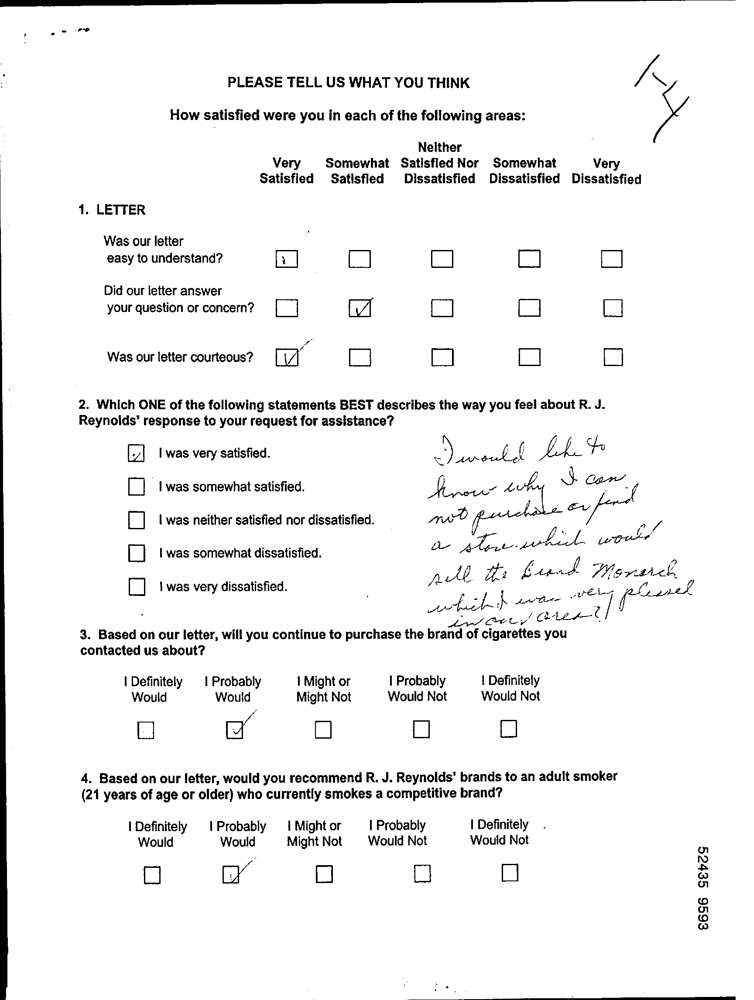 1-4
PLEASE TELL US WHAT YOU THINK
How satisfied were you in each of the following areas:
Very Satisfied Somewhat Satisfied Neither Satisfied Nor Dissatisfied Somewhat Dissatisfied Very Dissatisfied
1. LETTER
Was our letter
easy to understand?
Did our letter answer
your question or concern?
Was our letter courteous?
2. Which ONE of the following statements BEST describes the way you feel about R. J.
Reynolds' response to your request for assistance?
I was very satisfied.
I was somewhat satisfied.
I was neither satisfied nor dissatisfied.
I was somewhat dissatisfied.
I was very dissatisfied.
I would like to
know why I can
not purchase or find
a store which would
sell the Brand Monarch
which I was very pleased
in our area?
3. Based on our letter, will you continue to purchase the brand of cigarettes you
contacted us about?
I Definitely Would I Probably Would I Might or Might Not I Probably Would Not I Definitely Would Not
4. Based on our letter, would you recommend R. J. Reynolds' brands to an adult smoker
(21 years of age or older) who currently smokes a competitive brand?
I Definitely Would I Probably Would I Might or Might Not I Probably Would Not I Definitely Would Not
52435 9593